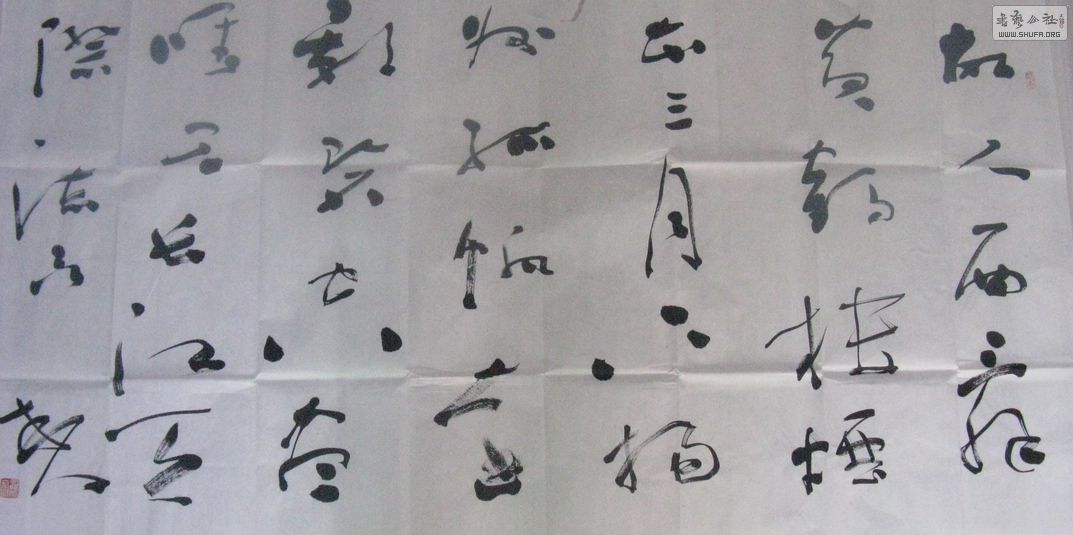 書藝公社
WWW.SHUFA.ORG
故人西辞
黄鹤楼煙
花三月下扬
州孤帆远
影碧空尽
唯见长江天
际流